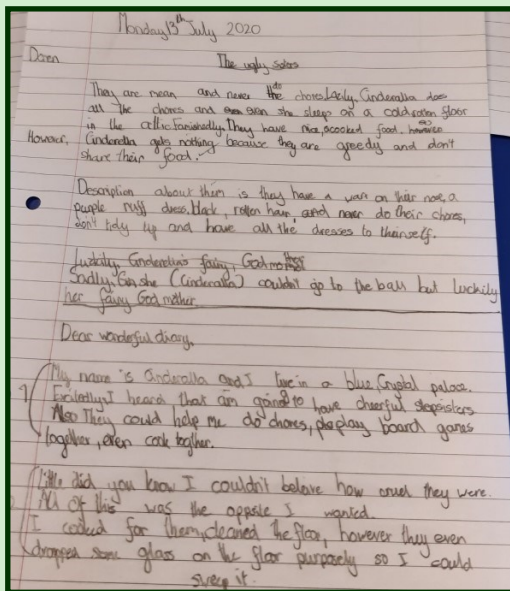 Monday 13th July 2020
Daren
The ugly sisters
They are mean and never do the chores. Lazily, Cinderella does
all the chores and even she sleep on a cold rotten floor
in the attic. Famishedly, They have nice, cooked food. however
However, Cinderella gets nothing because they are greedy and don't
share their food.
Description about them is they have a wart on their nose, a
purple ruff dress, black, rotten hair, and never do their chores,
don't tidy up and have all the dresses to theirself.
Luckily, Cinderella's fairy God mother
Sadly, Cin she (Cinderalla) couldn't go to the ball but luckily
her fairy God mother
Dear wonderful diary,
My name is Cinderalla and I live in a blue, Crystal palace.
Excitedly, I heard that am going to have cheerful stepsisters
Also They could help me do chores, play board games
together, even cook togther.
Little did you know I couldn't beleive how cruel they were.
All of this was the oppisite I wanted.
I cooked for them, cleaned the floor, however they even
dropped some glass on the floor purposely so I could
sweep it.